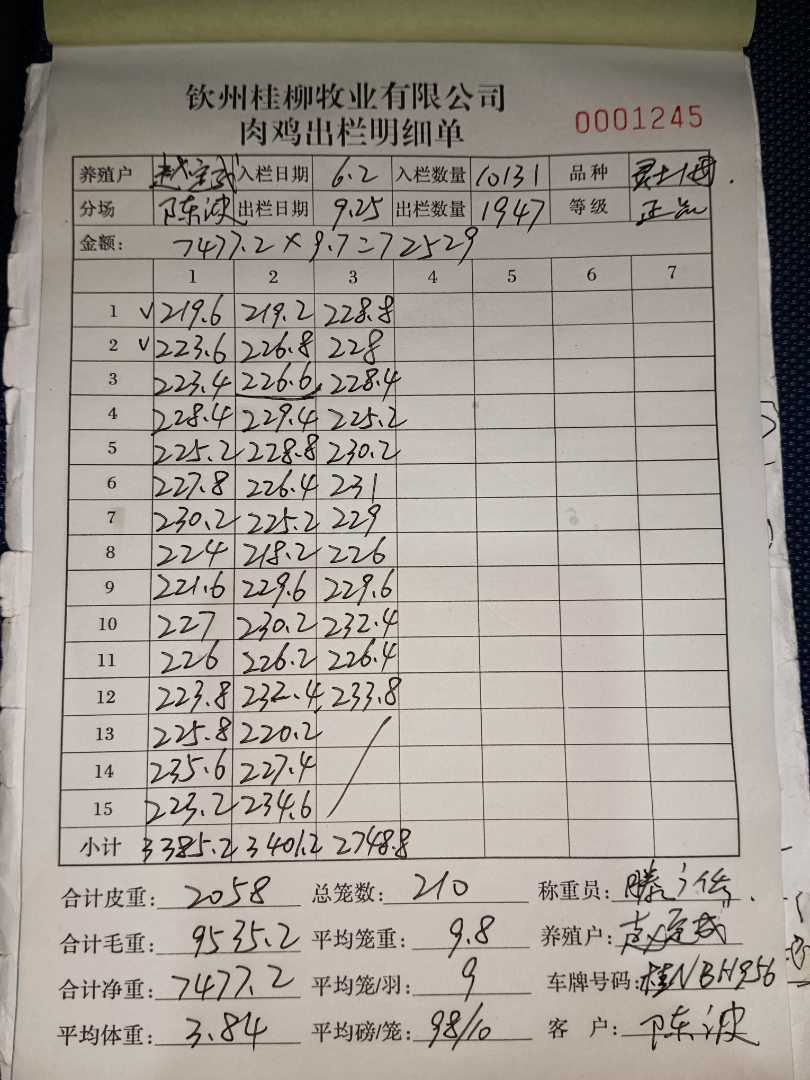 钦州桂柳牧业有限公司
肉鸡出栏明细单 0001245
养殖户 赵宝武 入栏日期 6.2 入栏数量 10131 品种
分场 陈波 出栏日期 9.25 出栏数量 1947 等级 正品
金额: 7477.2×9.7=72529
1 2 3 4 5 6 7
1 √ 219.6 219.2 228.8
2 √ 223.6 226.8 228
3 223.4 226.6 228.4
4 228.4 229.4 225.2
5 225.2 228.8 230.2
6 227.8 226.4 231
7 230.2 225.2 229
8 224 218.2 226
9 221.6 229.6 229.6
10 227 230.2 232.4
11 226 226.2 226.4
12 223.8 232.4 233.8
13 225.8 220.2
14 235.6 227.4
15 223.2 234.6
小计 3385.2 3401.2 2748.8
合计皮重: 2058 总笼数: 210 称重员:
合计毛重: 9535.2 平均笼重: 9.8 养殖户:
合计净重: 7477.2 平均笼/羽: 9 车牌号码: 桂NBH956
平均体重: 3.84 平均磅/笼: 98/10 客户: 陈波